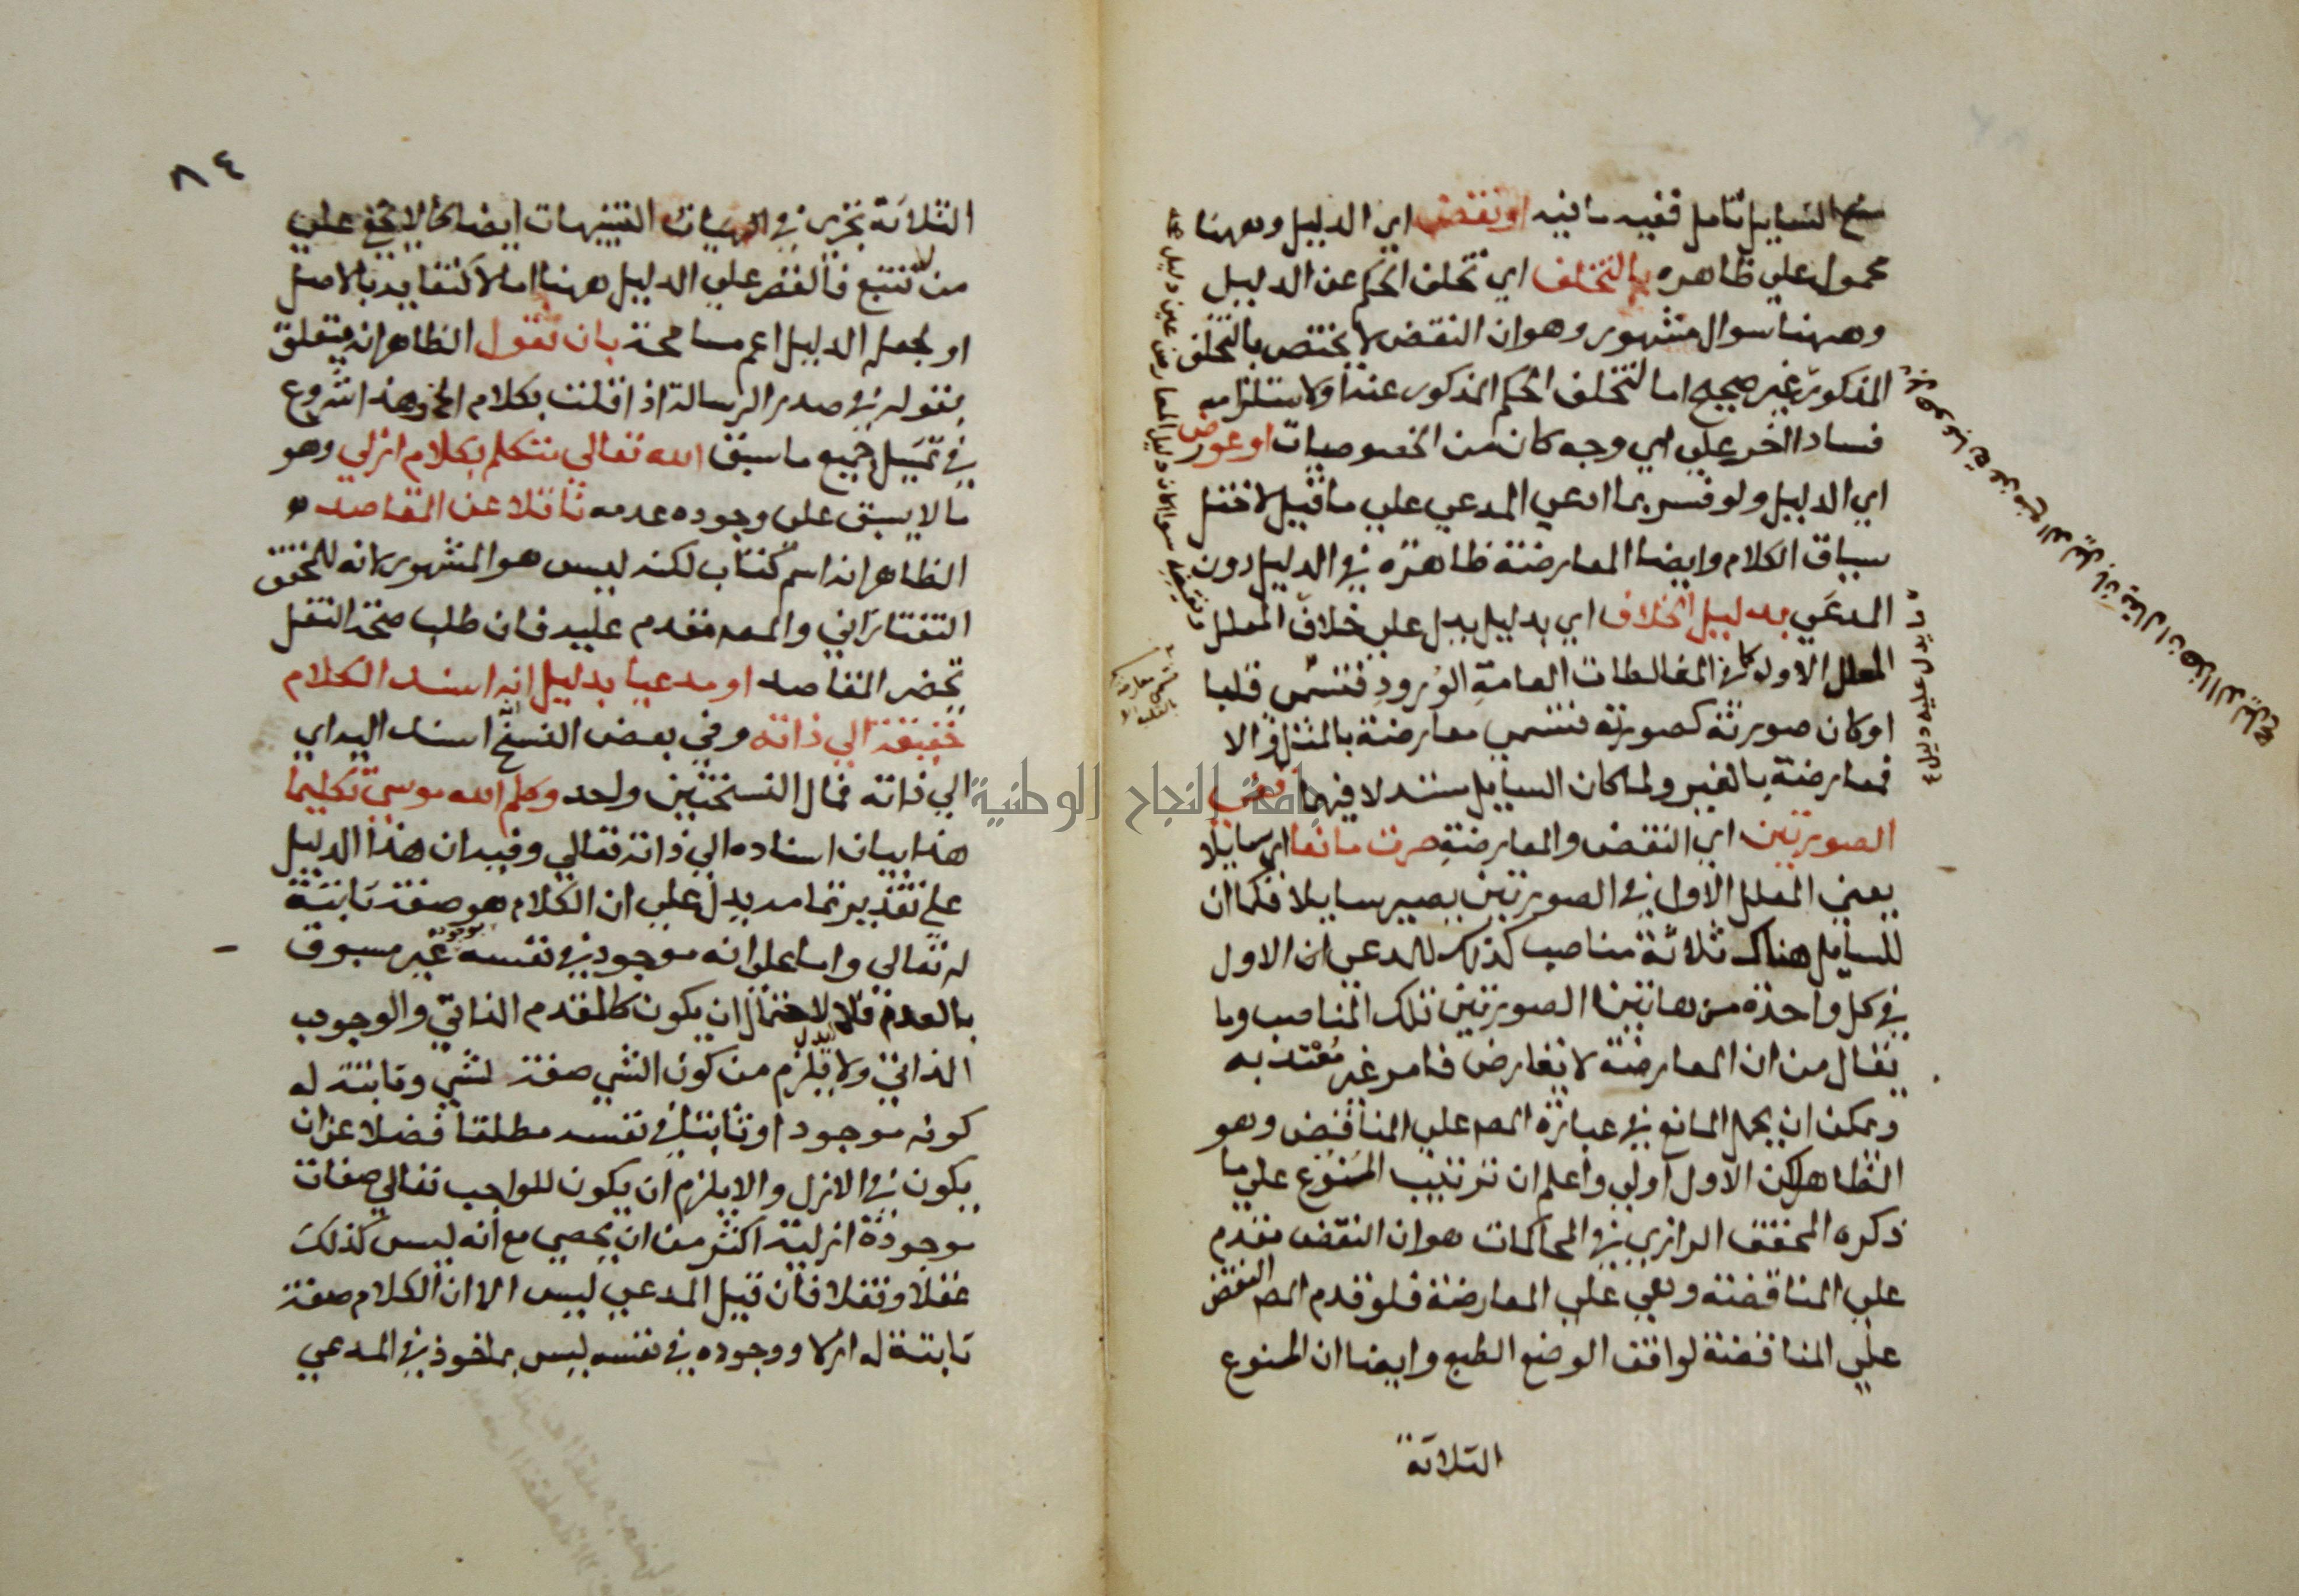 منع السايل تامل ففيه ما فيه او نقض اي الدليل وههنا
محمول علي ظاهره بالتخلف اي تخلف الحكم عن الدليل
وههنا سوال مشهور وهو ان النقض لا يختص بالتخلف
المذكور غير صحيح اما لتخلف الحكم المذكور عنه او لاستلزامه
فسادا اخر علي اي وجه كان من الخصوصيات او عورض
اي الدليل ولو فسر بما ادعي المدعي علي ما قيل لاختل
سياق الكلام وايضا المعارضة ظاهرة في الدليل دون
المدعي بدليل الخلاف اي بدليل يدل علي خلاف المعلل
المعلل الاول كما في المغالطات العامة الورود فتسمي قلبا
او كان صورته كصورته فتسمي معارضة بالمثل والا
فمعارضة بالغير ولما كان السايل مستدلا فيهما ففي
الصورتين اي النقض والمعارضة صرت مانعا اي سايلا
يعني المعلل الاول في الصورتين يصير سايلا فكما ان
للسايل هناك ثلاثة مناصب كذلك للمدعي الاول
في كل واحدة من هاتين الصورتين تلك المناصب وما
يقال من ان المعارضة لا تعارض فامر غير معتد به
ويمكن ان يحمل المانع في عبارة المص علي المناقض وهو
الظاهر لكن الاول اولي واعلم ان ترتيب المنوع علي ما
ذكره المحقق الرازي في المحاكمات هو ان النقض مقدم
علي المناقضة وهي علي المعارضة فلو قدم المص النقض
علي المناقضة لوافق الوضع الطبع وايضا ان المنوع
الثلاثة
ما يدل عليه دليل
جامعة النجاح الوطنية
٨٤
الثلاثة تجري في التنبيهات ايضا كما لا يخفي علي
من تتبع فالقصر علي الدليل ههنا اما لاكتفايه بالاصل
او لجعل الدليل اعم مسامحة بان تقول الظاهر انه يتعلق
بقوله في صدر الرسالة اذا قلت بكلام الخ وهذا شروع
في تمثيل جميع ما سبق الله تعالي متكلم بكلام ازلي وهو
ما لا يسبق علي وجوده عدمه ناقلا عن المقاصد
الظاهر انه اسم كتاب لكنه ليس هو المشهور لانه للمحقق
التفتازاني والمص مقدم عليه فان طلب صحة النقل
تحضر المقاصد او مدعيا بدليل انه اسند الكلام
حقيقة الي ذاته وفي بعض النسخ اسند اليه اي
الي ذاته فمال النسختين واحد وكلم الله موسي تكليما
هذا بيان اسناده الي ذاته تعالي وفيه ان هذا الدليل
علي تقدير تمامه يدل علي ان الكلام هو صفة ثابتة
له تعالي واما علي انه موجود في نفسه غير مسبوق
بالعدم فلا لاحتمال ان يكون كالقدم الذاتي والوجوب
الذاتي ولا يلزم من كون الشي صفة لشي وثابتة له
كونه موجودا وثابتا في نفسه مطلقا فضلا عن ان
يكون في الازل والا يلزم ان يكون للواجب تعالي صفات
موجودة ازلية اكثر من ان يحصي مع انه ليس كذلك
عقلا ونقلا فان قيل المدعي ليس الا ان الكلام صفة
ثابتة له ازلا ووجوده في نفسه ليس بماخوذ في المدعي